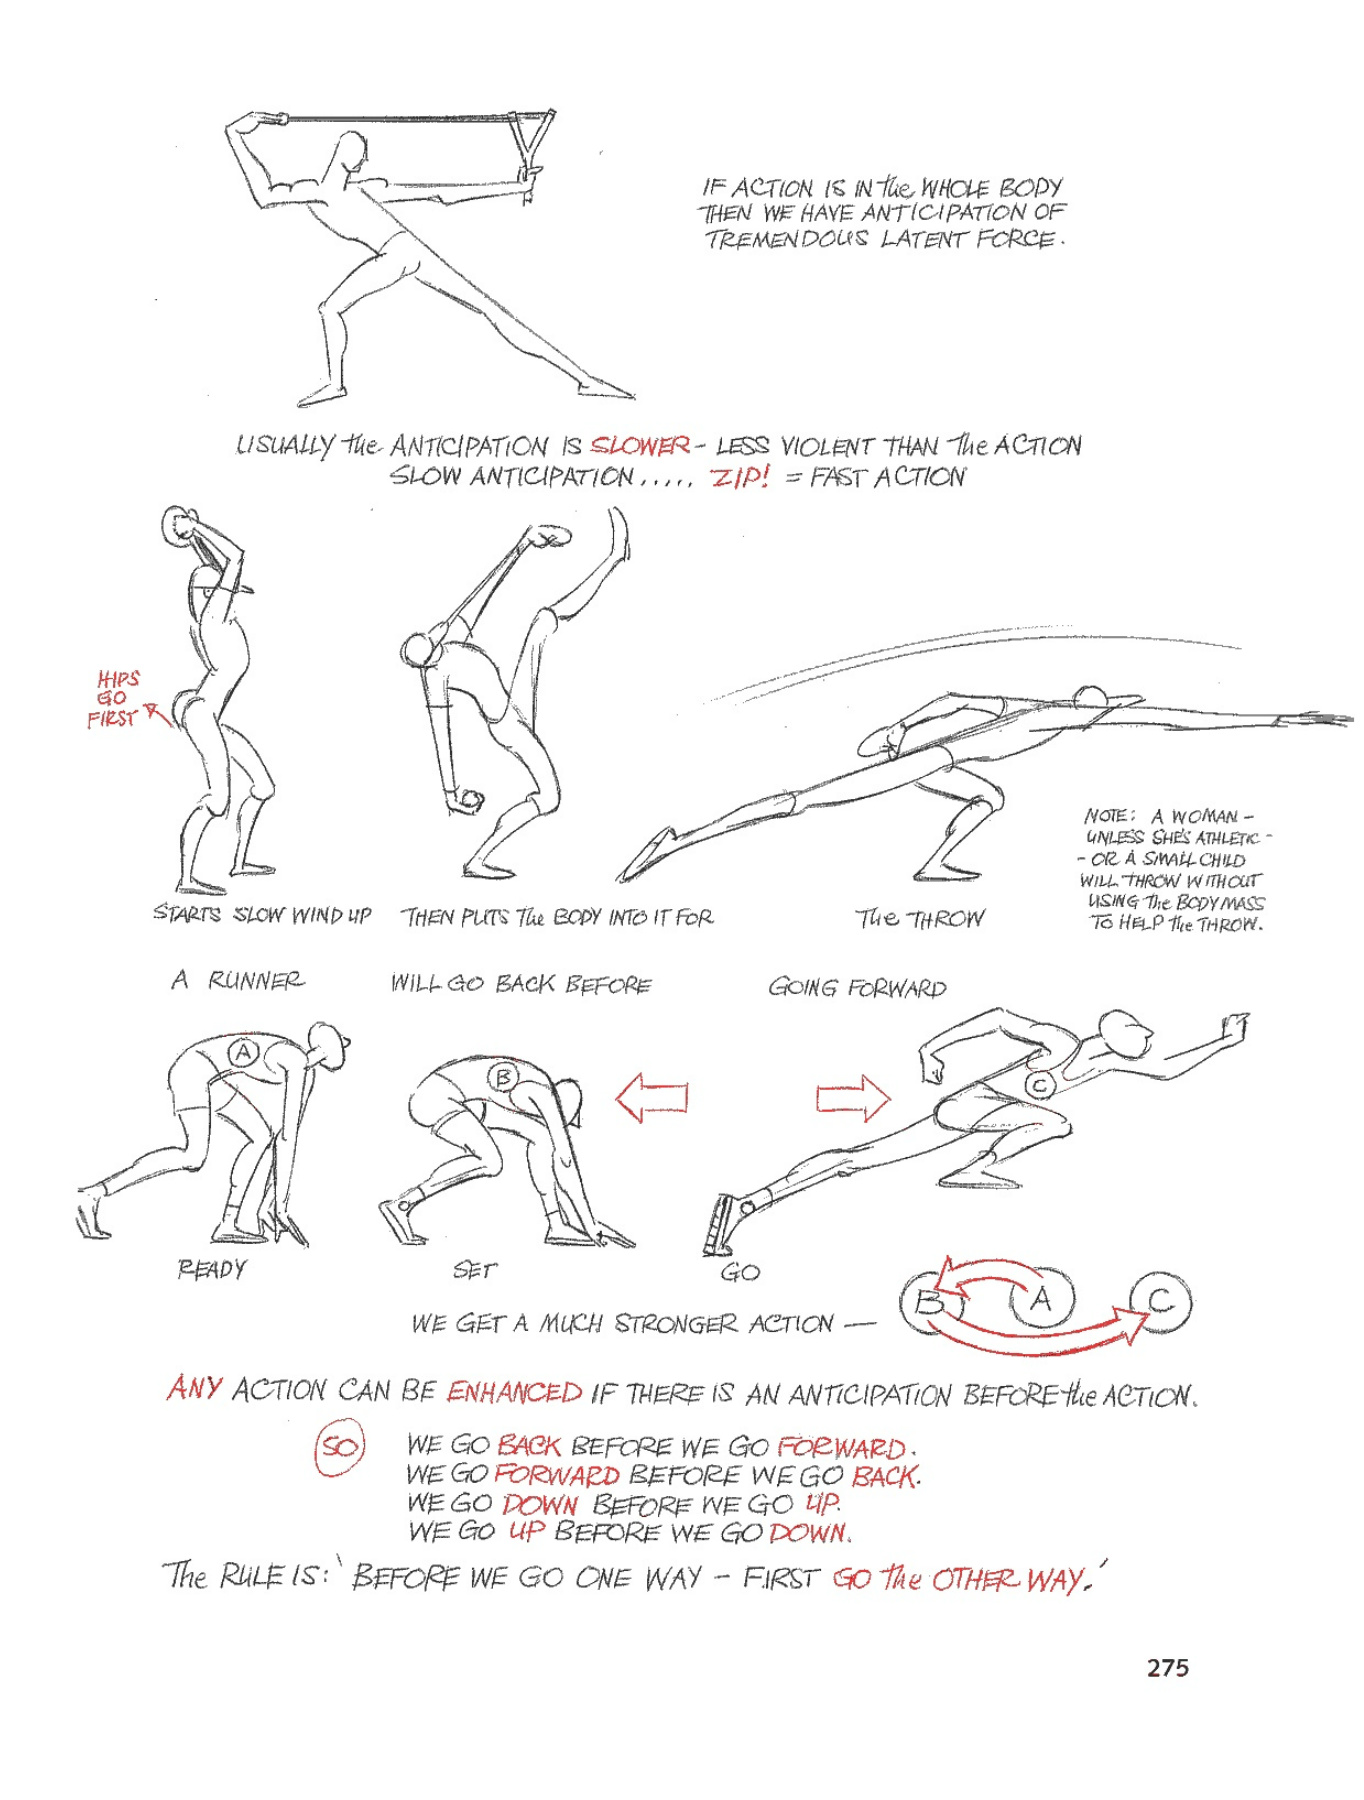 IF ACTION IS IN the WHOLE BODY
THEN WE HAVE ANTICIPATION OF
TREMENDOUS LATENT FORCE.
USUALLY the ANTICIPATION IS SLOWER - LESS VIOLENT THAN the ACTION
SLOW ANTICIPATION..... ZIP! = FAST ACTION
HIPS
GO
FIRST
NOTE: A WOMAN -
UNLESS SHE'S ATHLETIC -
- OR A SMALL CHILD
WILL THROW WITHOUT
USING the BODY MASS
TO HELP the THROW.
STARTS SLOW WIND UP
THEN PUTS the BODY INTO IT FOR
the THROW
A RUNNER
WILL GO BACK BEFORE
GOING FORWARD
A
B
C
READY
SET
GO
WE GET A MUCH STRONGER ACTION —
B A C
ANY ACTION CAN BE ENHANCED IF THERE IS AN ANTICIPATION BEFORE the ACTION.
SO
WE GO BACK BEFORE WE GO FORWARD.
WE GO FORWARD BEFORE WE GO BACK.
WE GO DOWN BEFORE WE GO UP.
WE GO UP BEFORE WE GO DOWN.
The RULE IS: 'BEFORE WE GO ONE WAY - FIRST GO the OTHER WAY.'
275